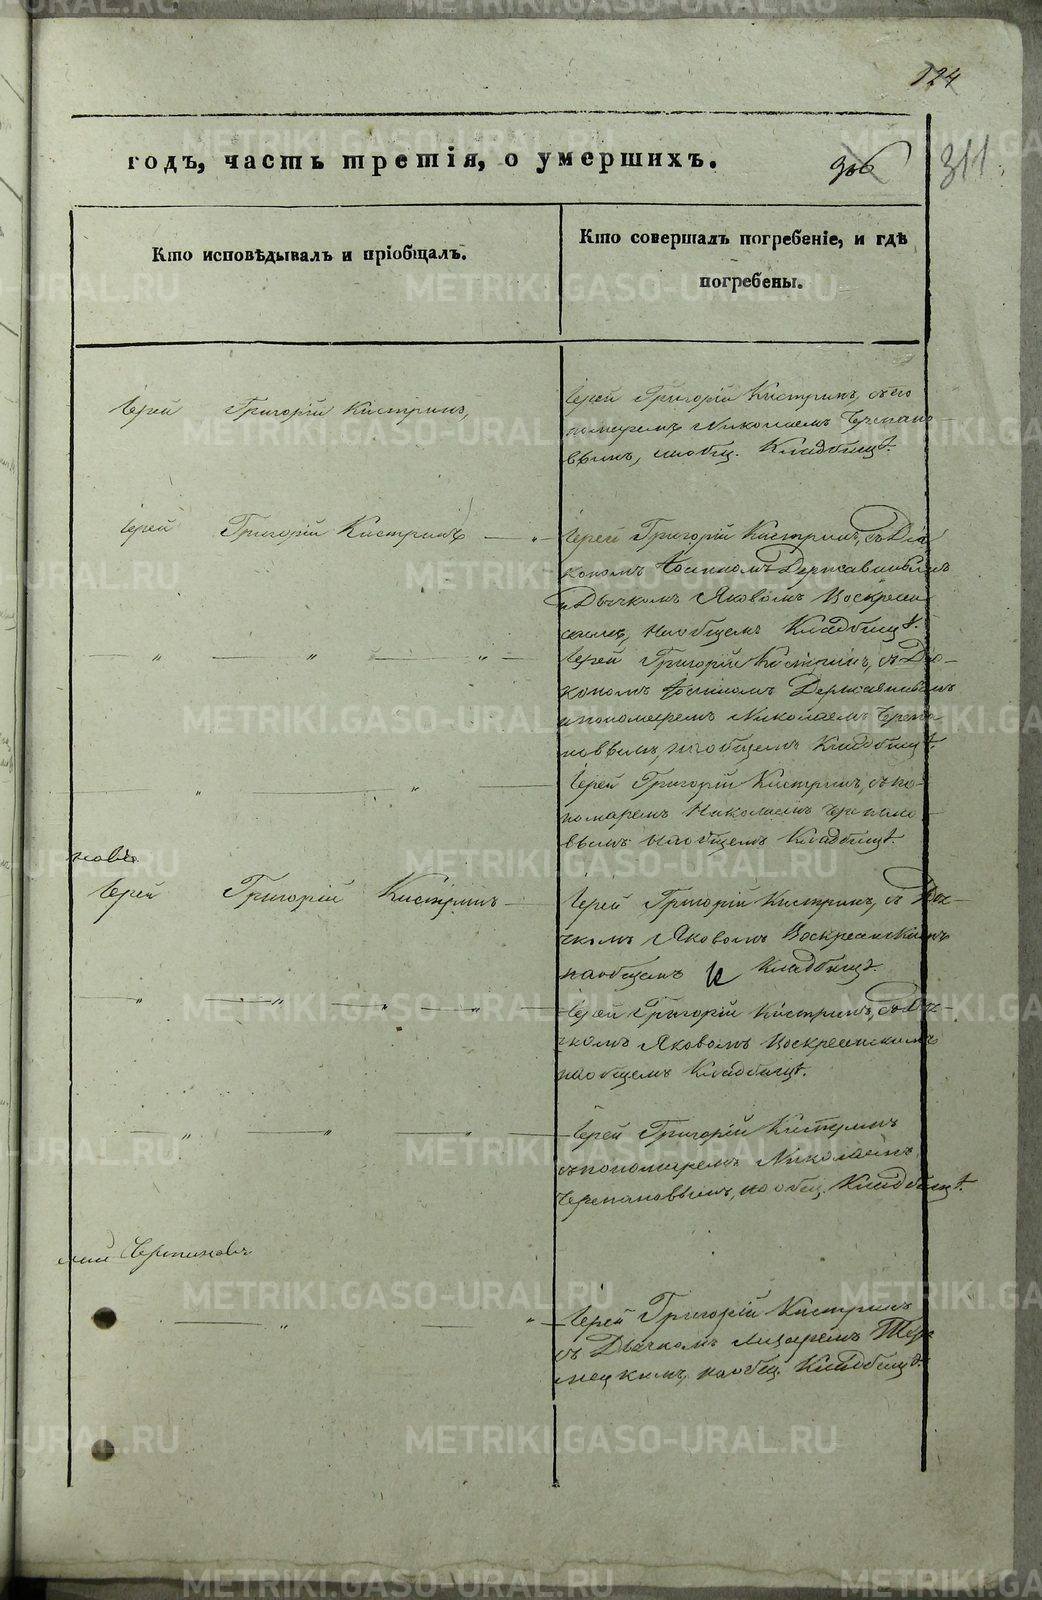 124
годъ, часть третія, о умершихъ.
306
311.
Кто исповѣдывалъ и пріобщалъ.
Кто совершалъ погребеніе, и гдѣ
погребены.
Іерей Григорій Кистринъ,
Іерей Григорій Кистринъ, съ по
номаремъ Николаемъ Черпано
вымъ, на общ. Кладбищѣ.
Іерей Григорій Кистринъ — „ —
Іерей Григорій Кистринъ, съ Діа
кономъ Державинымъ
и Дьячкомъ Яковомъ Воскресен
скимъ, на общемъ Кладбищѣ.
— „ — „ — „ —
Іерей Григорій Кистринъ, съ Діа-
кономъ Державинымъ
и пономаремъ Николаемъ Черпа
новымъ, на общемъ Кладбищѣ.
„ — „ —
Іерей Григорій Кистринъ, съ по-
номаремъ Николаемъ Черпано
вымъ на общемъ Кладбищѣ.
новъ
Іерей Григорій Кистринъ —
Іерей Григорій Кистринъ, съ Дья-
чкомъ Яковомъ Воскресенскимъ
на общемъ Кладбищѣ.
— „ — „ — „ — „ —
Іерей Григорій Кистринъ, съ Дья-
чкомъ Яковомъ Воскресенскимъ
на общемъ Кладбищѣ.
— „ — „ — „ —
Іерей Григорій Кистринъ
съ пономаремъ Николаемъ
Черпановымъ, на общ. Кладбищѣ.
лай Черпановъ
— „ — „ —
Іерей Григорій Кистринъ
съ Дьячкомъ
на общ. Кладбищѣ.
METRIKI.GASO-URAL.RU